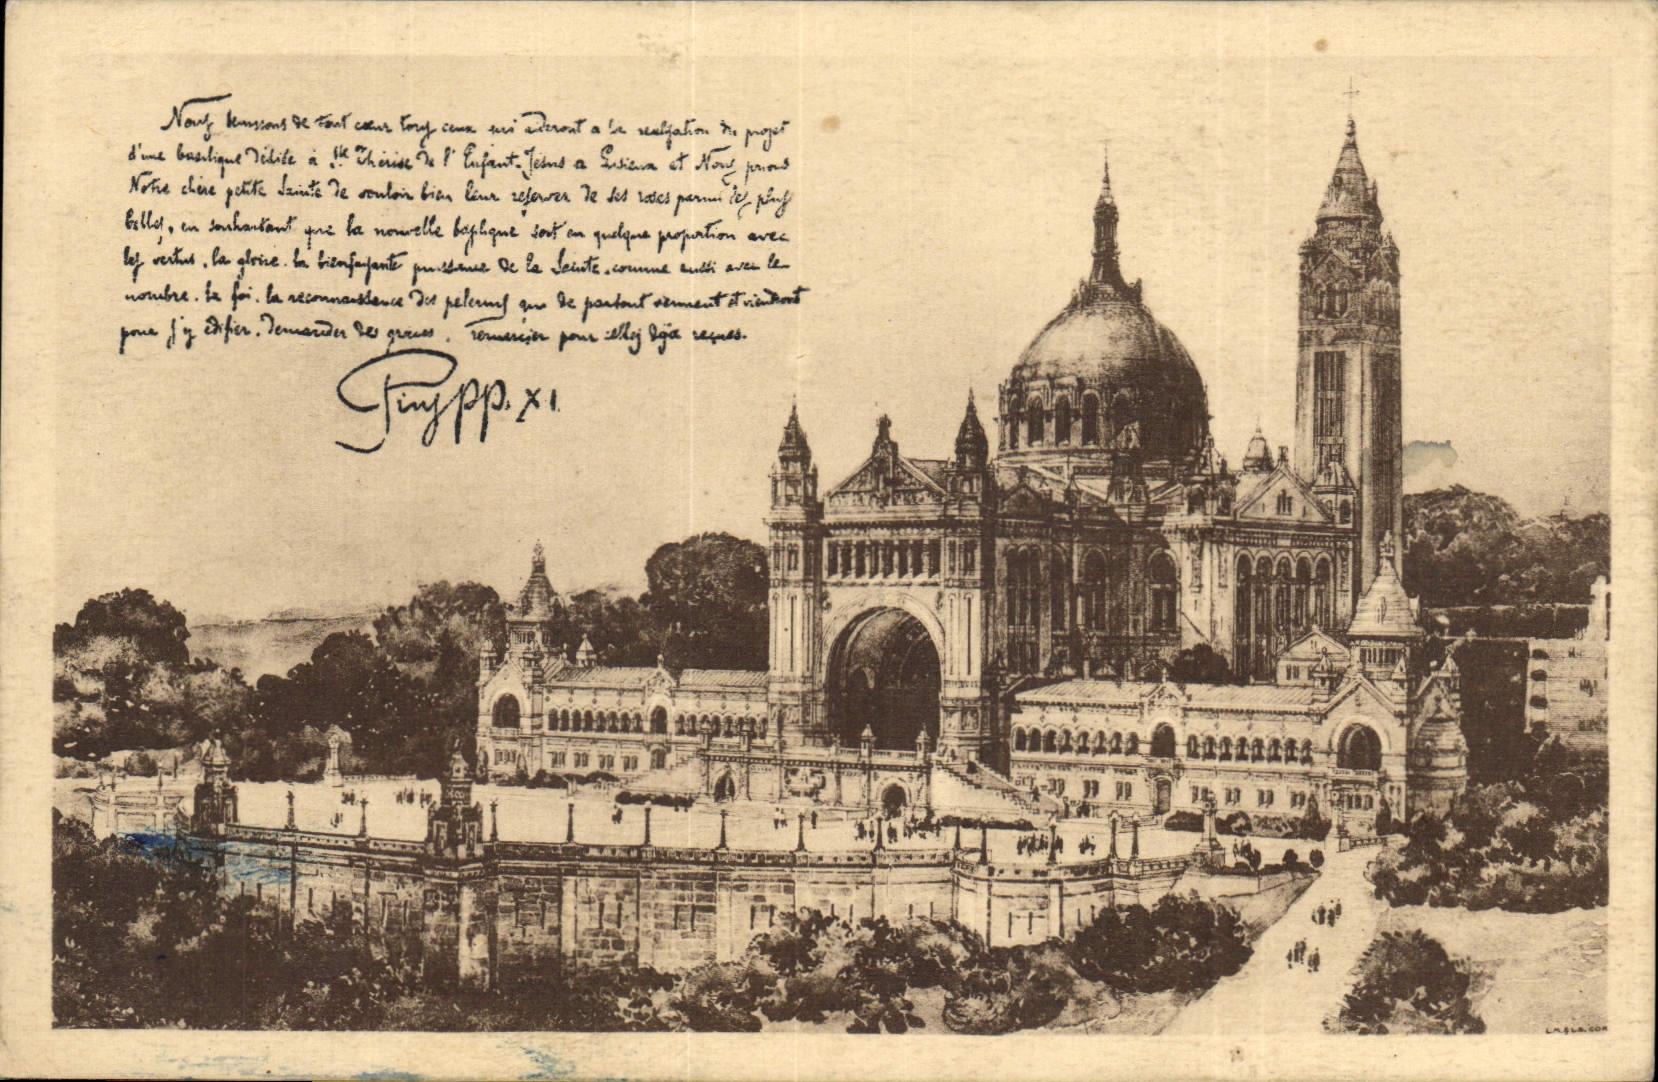 Nous bénissons de tout cœur tous ceux qui aideront a la réalisation du projet
d'une basilique dédiée à Ste Thérèse de l'Enfant-Jésus a Lisieux et Nous prions
Notre chère petite Sainte de vouloir bien leur réserver de ses roses parmi les plus
belles, en souhaitant que la nouvelle basilique soit en quelque proportion avec
les vertus, la gloire, la bienfaisante puissance de la Sainte, comme aussi avec le
nombre, la foi, la reconnaissance des pelerins qui de partout viennent et viendront
pour s'y édifier, demander des graces, remercier pour celles déja reçues.
Pius pp. XI